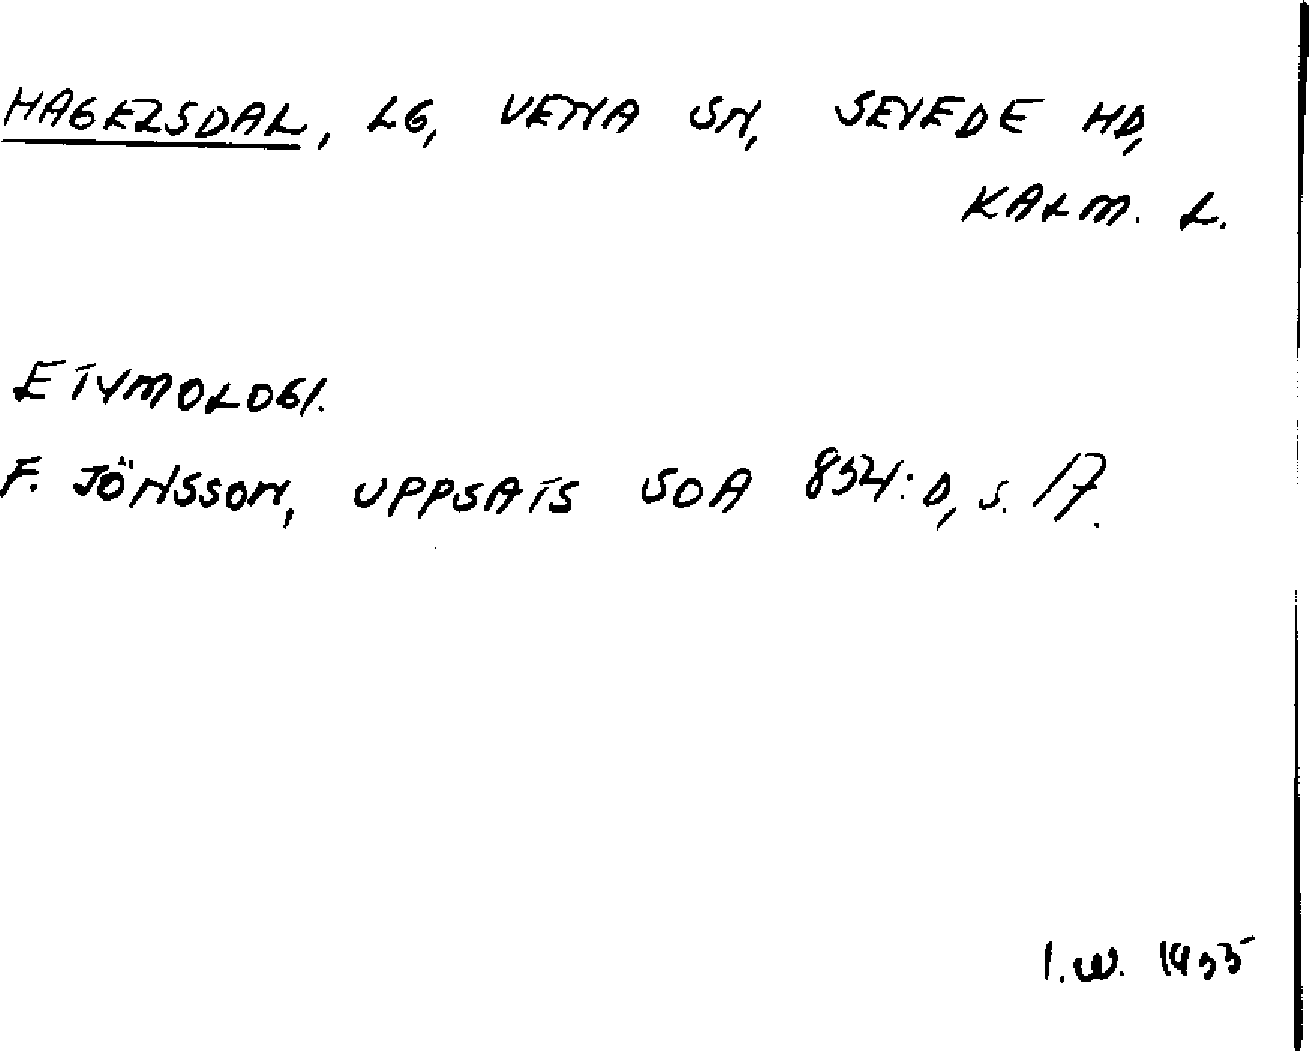 HAGERSDAL, LG, VENA SN, SEVEDE HD,
KALM. L.
ETYMOLOGI.
F. JÖNSSON, UPPSATS SOA 854:D, S. 17.
I.W. 1955